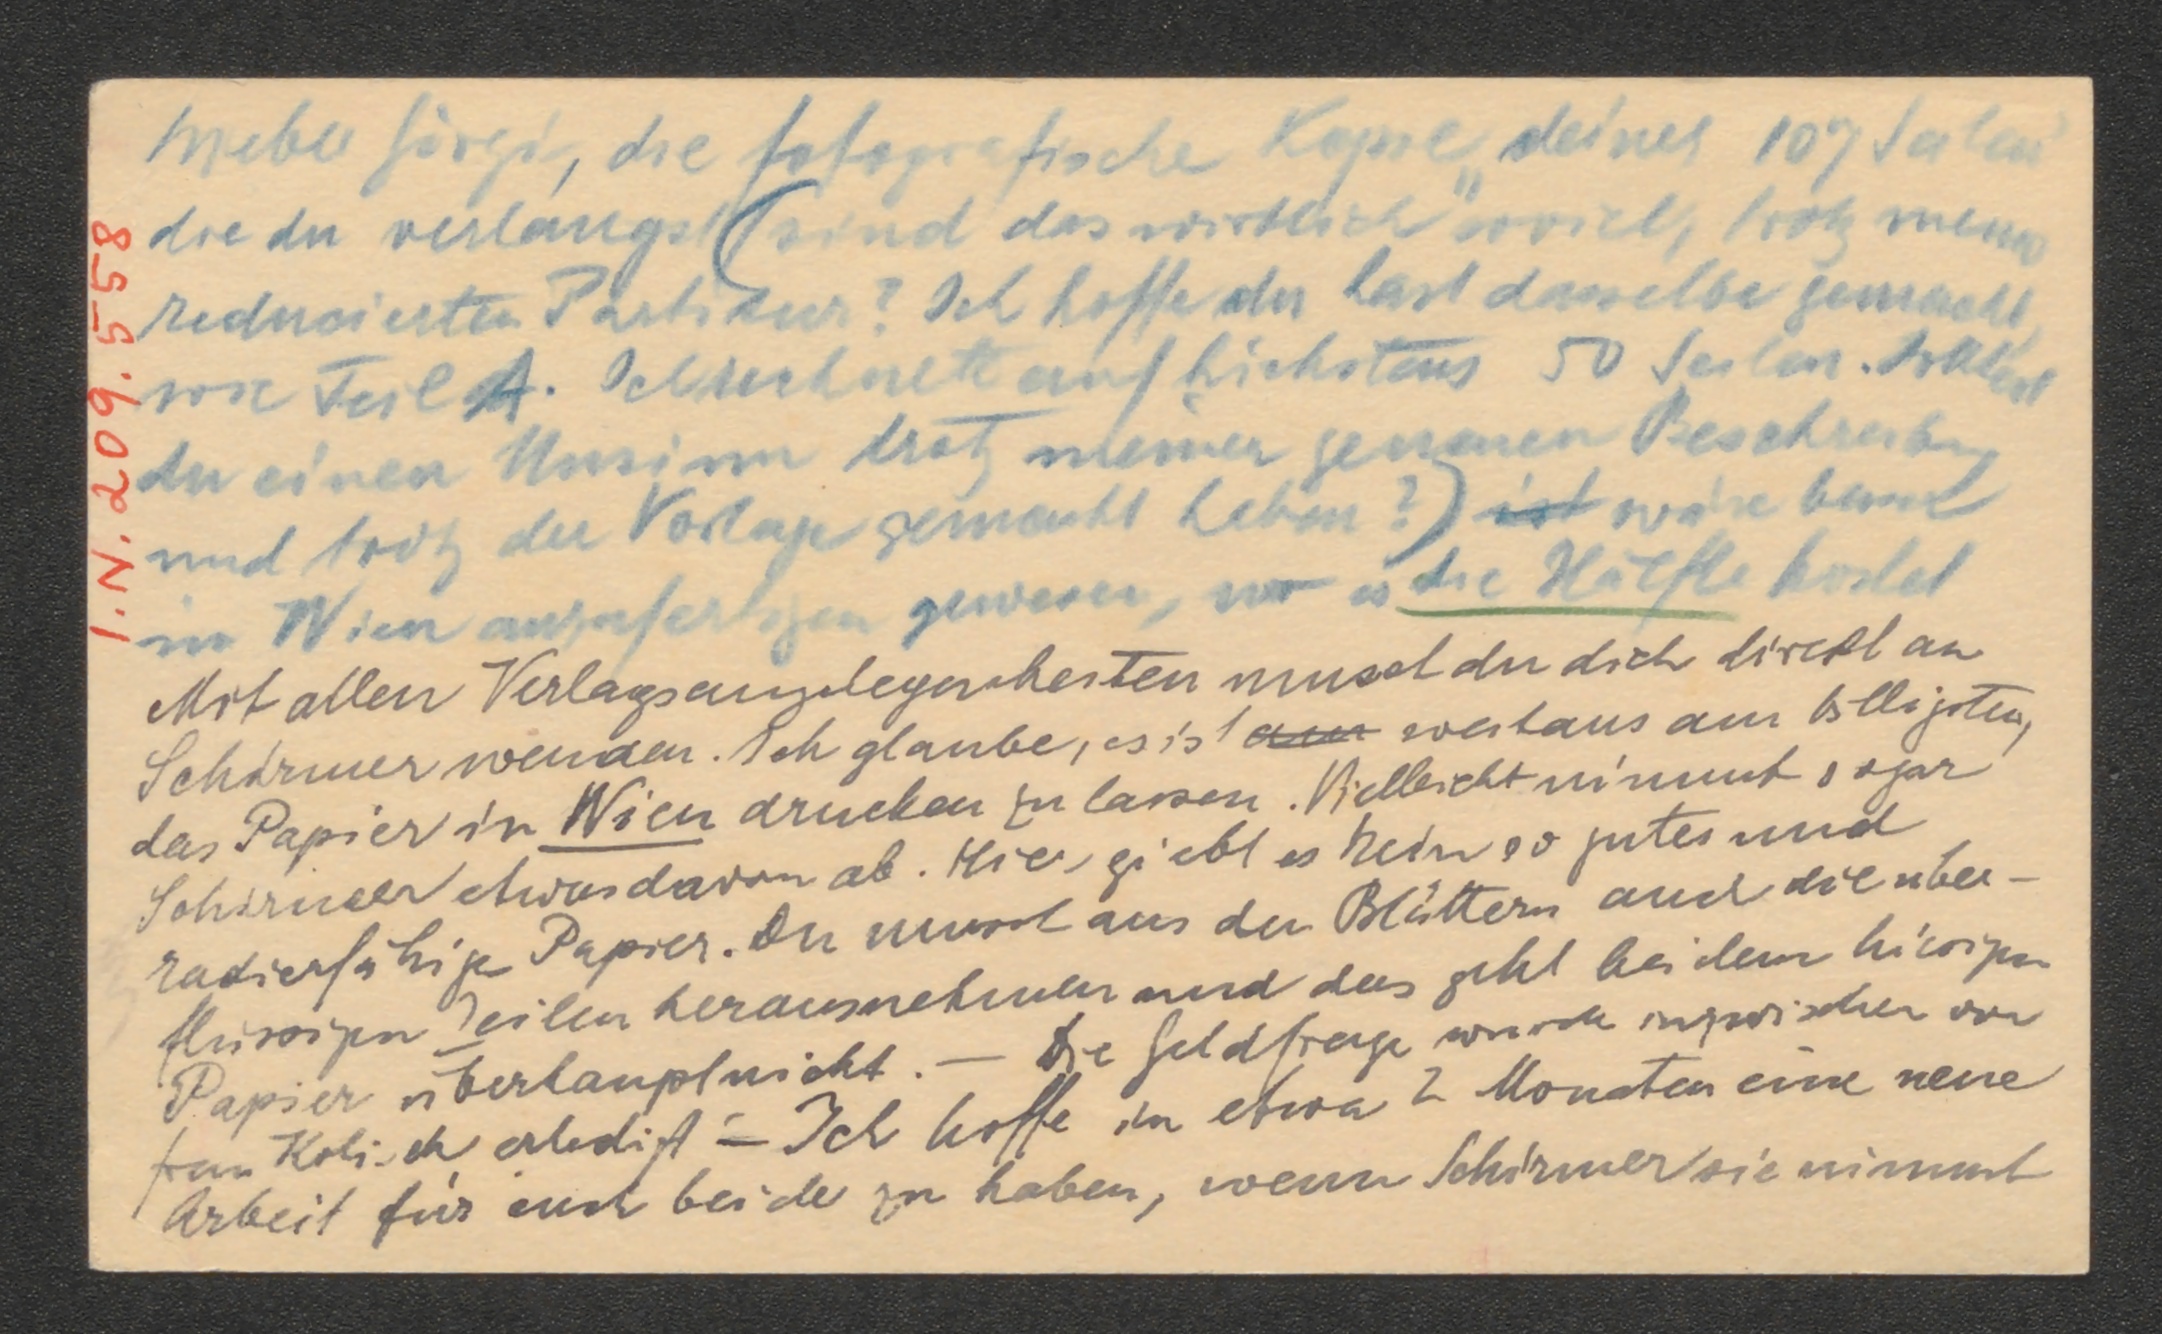 Mein lieber Görgi, die fotografische Kopie „deiner 107 Seiten
die du verlangst (sind das wirklich" soviel, trotz meiner
reducierten Partitur? Ich hoffe du hast dasselbe gemacht,
wie Teil A. Ich rechnete auf höchstens 50 Seiten. Solltest
du einen Unsinn trotz meiner genauen Beschreibung
und trotz der Vorlage gemacht haben?) ist wäre besser
in Wien anzufertigen gewesen, wo es die Hälfte kostet
Mit allen Verlagsangelegenheiten musst du dich direkt an
Schirmer wenden. Ich glaube, es ist am weitaus am billigsten,
das Papier in Wien drucken zu lassen. Vielleicht nimmt sogar
Schirmer etwas davon ab. Hier giebt es kein so gutes und
radierfähige Papier. Du musst aus den Blättern auch die über-
flüssigen Zeilen herausnehmen und das geht bei dem hiesigen
Papier überhaupt nicht. — Die Geldfrage wurde inzwischen von
frau Kolisch erledigt — Ich hoffe in etwa 2 Monaten eine neue
Arbeit für euch beide zu haben, wenn Schirmer sie nimmt
I.N. 209.558